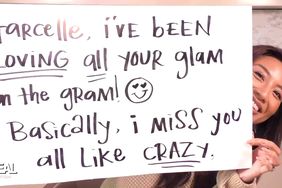 i've BEEN
LOVING all YOUR glam
on the gram!
Basically, i MISS you
all Like CRAZY.